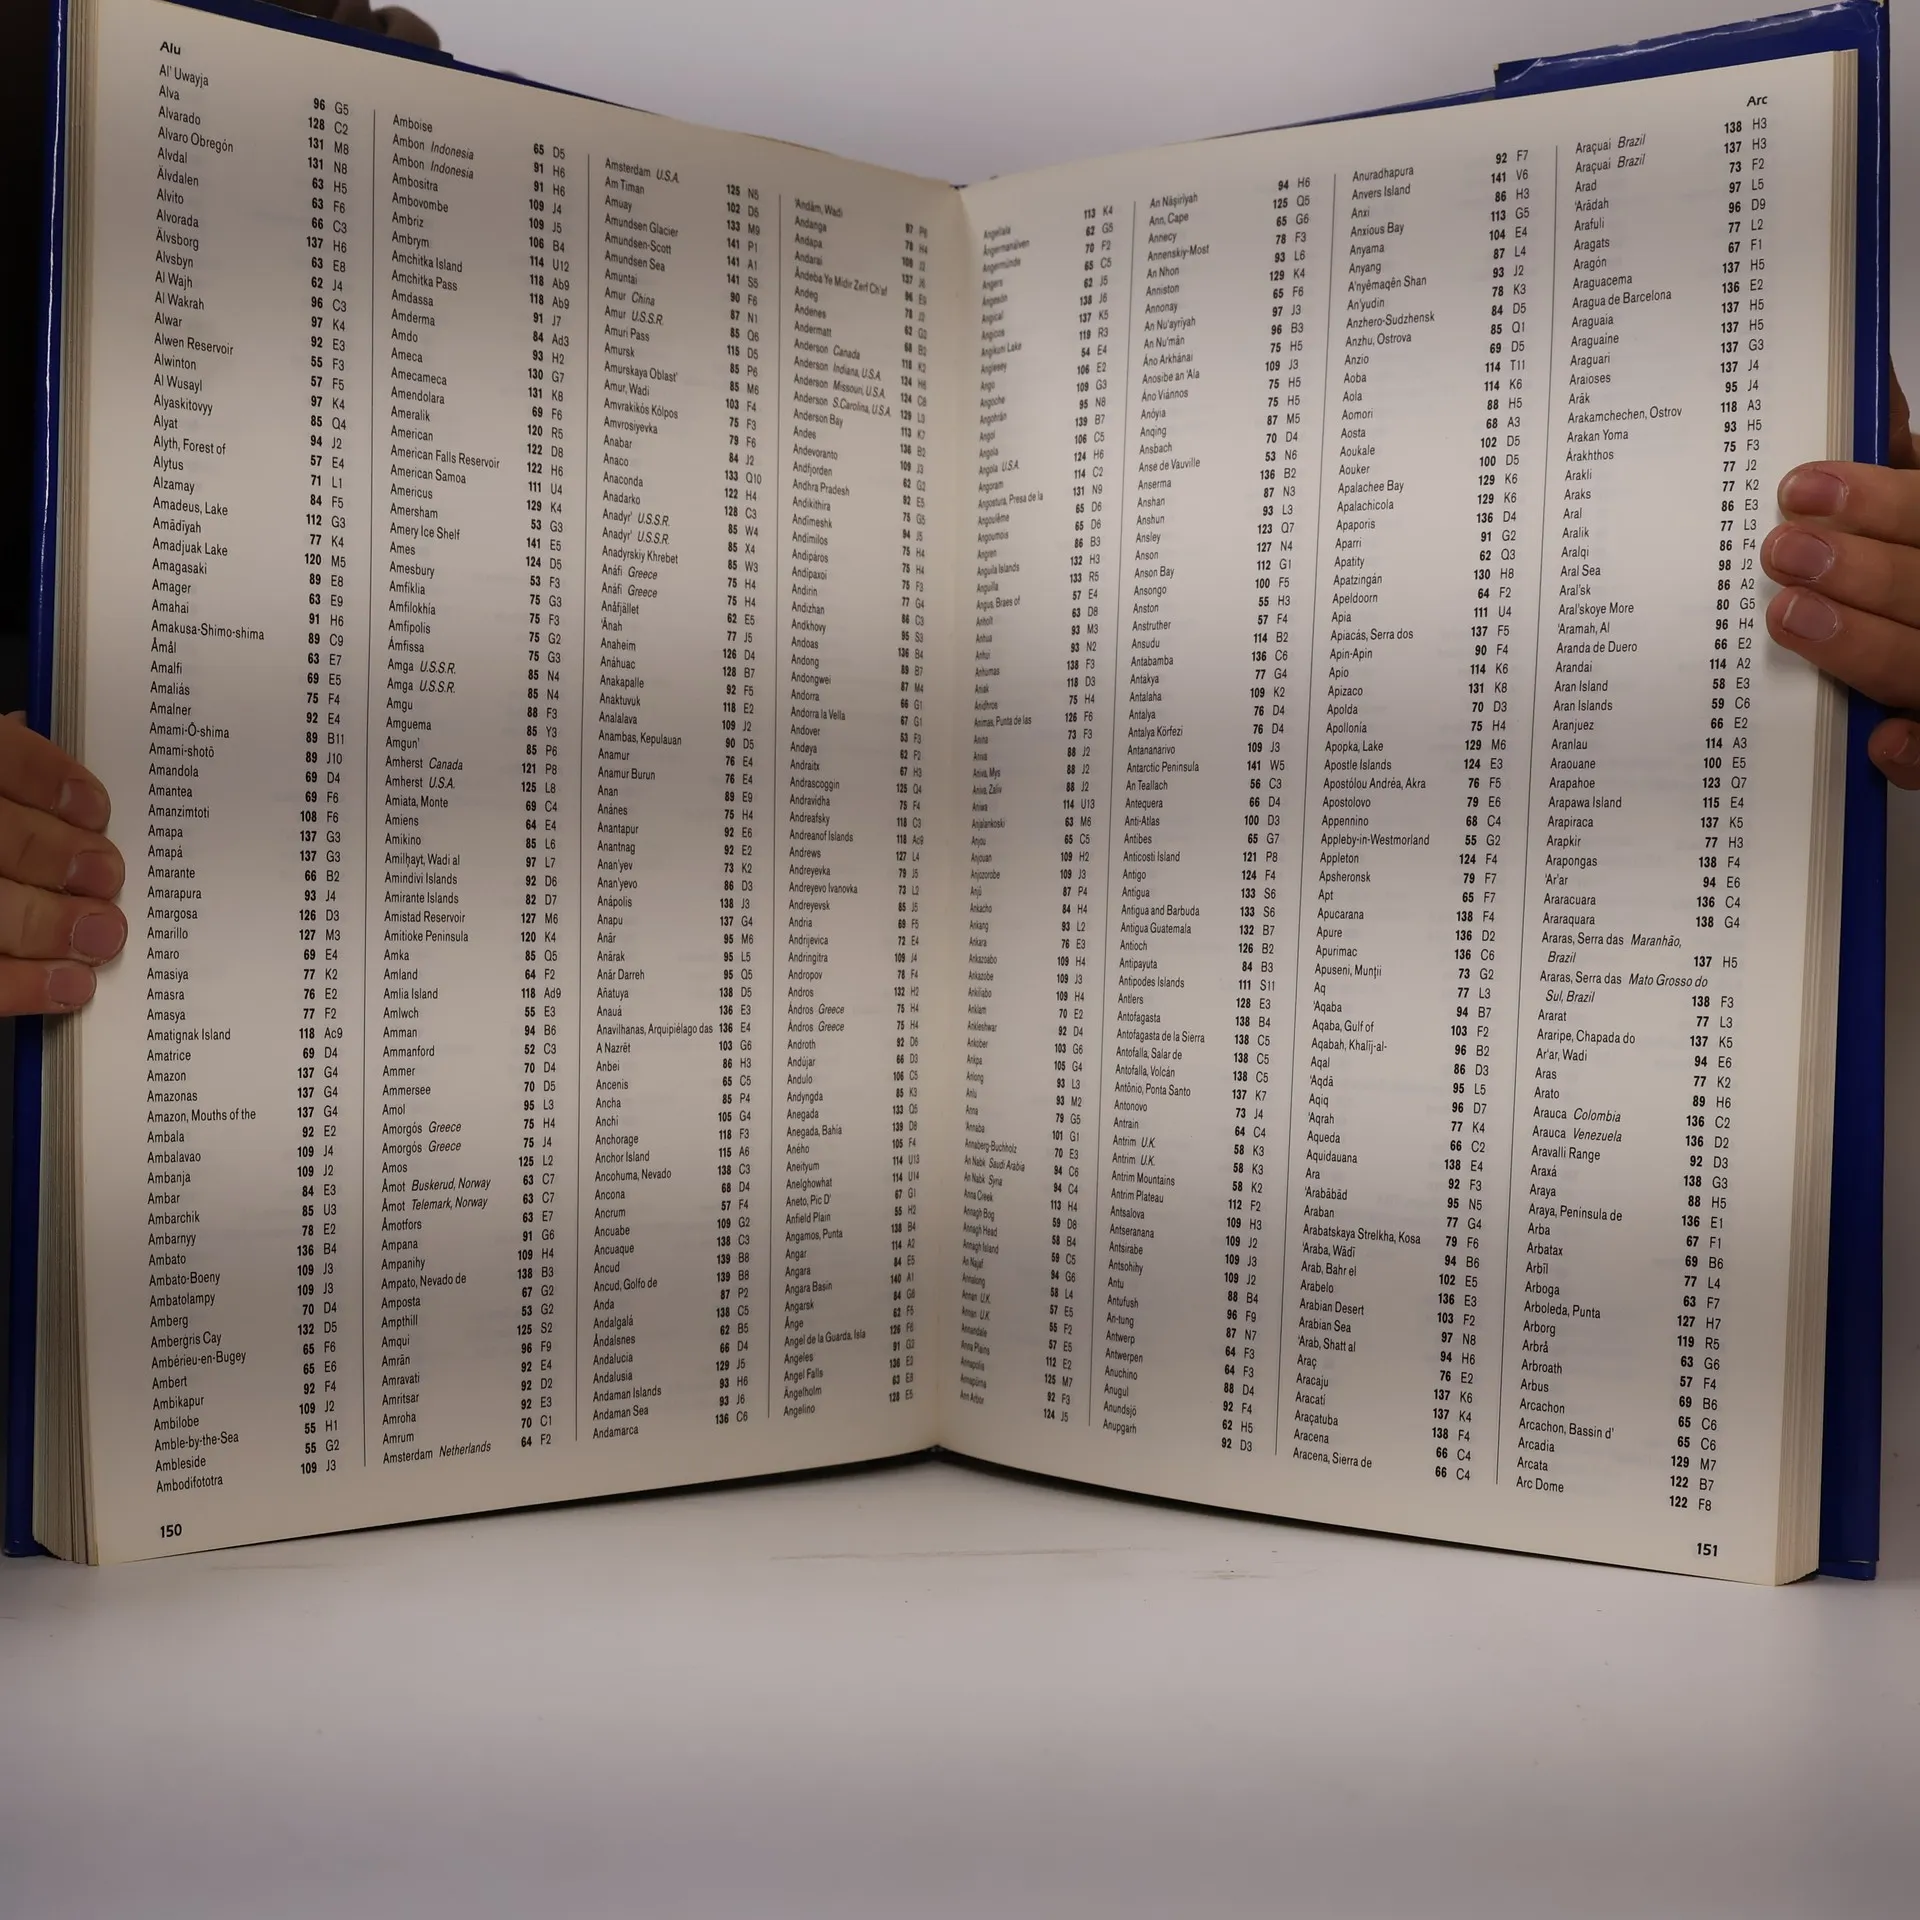 Alu
Al' Uwayja 96 G5
Alva 128 C2
Alvarado 131 M8
Alvaro Obregón 131 N8
Alvdal 63 H5
Älvdalen 63 F6
Alvito 66 C3
Alvorada 137 H6
Älvsborg 63 E8
Älvsbyn 62 J4
Al Wajh 96 C3
Al Wakrah 97 K4
Alwar 92 E3
Alwen Reservoir 55 F3
Alwinton 57 F5
Al Wusayl 97 K4
Alyaskitovyy 85 Q4
Alyat 94 J2
Alyth, Forest of 57 E4
Alytus 71 L1
Alzamay 84 F5
Amadeus, Lake 112 G3
Amādīyah 77 K4
Amadjuak Lake 120 M5
Amagasaki 89 E8
Amager 63 E9
Amahai 91 H6
Amakusa-Shimo-shima 89 C9
Åmål 63 E7
Amalfi 69 E5
Amaliás 75 F4
Amalner 92 E4
Amami-Ō-shima 89 B11
Amami-shotō 89 J10
Amandola 69 D4
Amantea 69 F6
Amanzimtoti 108 F6
Amapa 137 G3
Amapá 137 G3
Amarante 66 B2
Amarapura 93 J4
Amargosa 126 D3
Amarillo 127 M3
Amaro 69 E4
Amasiya 77 K2
Amasra 76 E2
Amasya 77 F2
Amatignak Island 118 Ac9
Amatrice 69 D4
Amazon 137 G4
Amazonas 137 G4
Amazon, Mouths of the 137 G4
Ambala 92 E2
Ambalavao 109 J4
Ambanja 109 J2
Ambar 84 E3
Ambarchik 85 U3
Ambarnyy 78 E2
Ambato 136 B4
Ambato-Boeny 109 J3
Ambatolampy 109 J3
Amberg 70 D4
Ambergris Cay 132 D5
Ambérieu-en-Bugey 65 F6
Ambert 65 E6
Ambikapur 92 F4
Ambilobe 109 J2
Amble-by-the-Sea 55 H1
Ambleside 55 G2
Ambodifototra 109 J3
Amboise 65 D5
Ambon Indonesia 91 H6
Ambon Indonesia 91 H6
Ambositra 109 J4
Ambovombe 109 J5
Ambriz 106 B4
Ambrym 114 U12
Amchitka Island 118 Ab9
Amchitka Pass 118 Ab9
Amdassa 91 J7
Amderma 84 Ad3
Amdo 93 H2
Ameca 130 G7
Amecameca 131 K8
Amendolara 69 F6
Ameralik 120 R5
American 122 D8
American Falls Reservoir 122 H6
American Samoa 111 U4
Americus 129 K4
Amersham 53 G3
Amery Ice Shelf 141 E5
Ames 124 D5
Amesbury 53 F3
Amfiklia 75 G3
Amfilokhía 75 F3
Amfipolis 75 G2
Ámfissa 75 G3
Amga U.S.S.R. 85 N4
Amga U.S.S.R. 85 N4
Amgu 88 F3
Amguema 85 Y3
Amgun' 85 P6
Amherst Canada 121 P8
Amherst U.S.A. 125 L8
Amiata, Monte 69 C4
Amiens 64 E4
Amikino 85 L6
Amilḥayt, Wadi al 97 L7
Amindivi Islands 92 D6
Amirante Islands 82 D7
Amistad Reservoir 127 M6
Amitioke Peninsula 120 K4
Amka 85 Q5
Amland 64 F2
Amlia Island 118 Ad9
Amlwch 55 E3
Amman 94 B6
Ammanford 52 C3
Ammer 70 D4
Ammersee 70 D5
Amol 95 L3
Amorgós Greece 75 H4
Amorgós Greece 75 J4
Amos 125 L2
Åmot Buskerud, Norway 63 C7
Åmot Telemark, Norway 63 C7
Åmotfors 63 E7
Ampana 91 G6
Ampanihy 109 H4
Ampato, Nevado de 138 B3
Amposta 67 G2
Ampthill 53 G2
Amqui 125 S2
Amrān 96 F9
Amravati 92 E4
Amritsar 92 D2
Amroha 92 E3
Amrum 70 C1
Amsterdam Netherlands 64 F2
Amsterdam U.S.A. 125 N5
Am Timan 102 D5
Amuay 133 M9
Amundsen Glacier 141 P1
Amundsen-Scott 141 A1
Amundsen Sea 141 S5
Amuntai 90 F6
Amur China 87 N1
Amur U.S.S.R. 85 Q6
Amuri Pass 115 D5
Amursk 85 P6
Amurskaya Oblast' 85 M6
Amur, Wadi 103 F4
Amvrakikós Kólpos 75 F3
Amvrosiyevka 79 F6
Anabar 84 J2
Anaco 133 Q10
Anaconda 122 H4
Anadarko 128 C3
Anadyr' U.S.S.R. 85 W4
Anadyr' U.S.S.R. 85 X4
Anadyrskiy Khrebet 85 W3
Anáfi Greece 75 H4
Anáfi Greece 75 H4
Anåfjället 62 E5
'Ānah 77 J5
Anaheim 126 D4
Anáhuac 128 B7
Anakapalle 92 F5
Anaktuvuk 118 E2
Analalava 109 J2
Anambas, Kepulauan 90 D5
Anamur 76 E4
Anamur Burun 76 E4
Anan 89 E9
Anánes 75 H4
Anantapur 92 E6
Anantnag 92 E2
Anan'yev 73 K2
Anan'yevo 86 D3
Anápolis 138 J3
Anapu 137 G4
Anār 95 M6
Anārak 95 L5
Anār Darreh 95 Q5
Añatuya 138 D5
Anauá 136 E3
Anavilhanas, Arquipiélago das 136 E4
A Nazrēt 103 G6
Anbei 86 H3
Ancenis 65 C5
Ancha 85 P4
Anchi 105 G4
Anchorage 118 F3
Anchor Island 115 A6
Ancohuma, Nevado 138 C3
Ancona 68 D4
Ancrum 57 F4
Ancuabe 109 G2
Ancuaque 138 C3
Ancud 139 B8
Ancud, Golfo de 139 B8
Anda 87 P2
Andalgalá 138 C5
Åndalsnes 62 B5
Andalucia 66 D4
Andalusia 129 J5
Andaman Islands 93 H6
Andaman Sea 93 J6
Andamarca 136 C6
'Andām, Wadi
Andanga 78 H4
Andapa
Andarai
Āndeba Ye Midir Zerf Ch'af
Andeg
Andenes
Andermatt
Anderson Canada
Anderson Indiana, U.S.A. 124 H6
Anderson Missouri, U.S.A. 124 C8
Anderson S.Carolina, U.S.A. 129 L3
Anderson Bay 113 K7
Andes 138 B2
Andevoranto 109 J3
Andfjorden 62 G2
Andhra Pradesh 92 E5
Andikithira 75 G5
Andimeshk 94 J5
Andimilos 75 H4
Andipáros 75 H4
Andipaxoi 75 F3
Andirin 77 G4
Andizhan 86 C3
Andkhovy 95 S3
Andoas 136 B4
Andong 89 B7
Andongwei 87 M4
Andorra 66 G1
Andorra la Vella 67 G1
Andover 53 F3
Andøya 62 F2
Andraitx 67 H3
Andrascoggin 125 Q4
Andravidha 75 F4
Andreafsky 118 C3
Andreanof Islands 118 Ac9
Andrews 127 L4
Andreyevka 79 J5
Andreyevo Ivanovka 73 L2
Andreyevsk 85 J5
Andria 69 F5
Andrijevica 72 E4
Andringitra 109 J4
Andropov 78 F4
Andros 132 H2
Ándros Greece 75 H4
Ándros Greece 75 H4
Androth 92 D6
Andújar 66 D3
Andulo 106 C5
Andyngda 85 K3
Anegada 133 Q5
Anegada, Bahia 139 D8
Aného 105 F4
Aneityum 114 U13
Anelghowhat 114 U14
Aneto, Pic D' 67 G1
Anfield Plain 55 H2
Angamos, Punta 138 B4
Angar 114 A2
Angara 84 E5
Angara Basin 140 A1
Angarsk 84 G6
Ånge 62 F5
Angel de la Guarda, Isla 126 F6
Angeles 91 G2
Angel Falls 136 E2
Ängelholm 63 E8
Angelino 128 E5
150
Arc
Angellala 113 K4
Ångermanälven 62 G5
Angermünde 70 F2
Angers 65 C5
Ångesön 62 J5
Angical 138 J6
Angicos 137 K5
Angikuni Lake 119 R3
Anglesey 54 E4
Ango 106 E2
Angoche 109 G3
Angohrān 95 N8
Angol 139 B7
Angola 106 C5
Angola U.S.A. 124 H6
Angoram 114 C2
Angostura, Presa de la 131 N9
Angoulême 65 D6
Angoumois 65 D6
Angren 86 B3
Anguila Islands 132 H3
Anguilla 133 R5
Angus, Braes of 57 E4
Anholt 63 D8
Anhua 93 M3
Anhui 93 N2
Anhumas 138 F3
Aniak 118 D3
Anidhros 75 H4
Animas, Punta de las 126 F6
Anina 73 F3
Aniva 88 J2
Aniva, Mys 88 J2
Aniva, Zaliv 88 J2
Aniwa 114 U13
Anjalankoski 63 M6
Anjou 65 C5
Anjouan 109 H2
Anjozorobe 109 J3
Anjü 87 P4
Ankacho 84 H4
Ankang 93 L2
Ankara 76 E3
Ankazoabo 109 H4
Ankazobe 109 J3
Ankiliabo 109 H4
Anklam 70 E2
Ankleshwar 92 D4
Ankober 103 G6
Ankpa 105 G4
Anlong 93 L3
Anlu 93 M2
Anna 79 G5
Annaba 101 G1
Annaberg-Buchholz 70 E3
An Nabk Saudi Arabia 94 C6
An Nabk Syria 94 C4
Anna Creek 113 H4
Annagh Bog 59 D8
Annagh Head 58 B4
Annagh Island 59 C5
An Najaf 94 G6
Annalong 58 L4
Annan U.K. 57 E5
Annan U.K. 55 F2
Annandale 57 E5
Anna Plains 112 E2
Annapolis 125 M7
Annapurna 92 F3
Ann Arbor 124 J5
An Nāṣirīyah 94 H6
Ann, Cape 125 Q5
Annecy 65 G6
Annenskiy-Most 78 F3
An Nhon 93 L6
Anniston 129 K4
Annonay 65 F6
An Nu'ayrīyah 97 J3
An Nu'mān 96 B3
Áno Arkhánai 75 H5
Anosibe an 'Ala 109 J3
Áno Viánnos 75 H5
Anóyia 75 H5
Anqing 87 M5
Ansbach 70 D4
Anse de Vauville 53 N6
Anserma 136 B2
Anshan 87 N3
Anshun 93 L3
Ansley 123 Q7
Anson 127 N4
Anson Bay 112 G1
Ansongo 100 F5
Anston 55 H3
Anstruther 57 F4
Ansudu 114 B2
Antabamba 136 C6
Antakya 77 G4
Antalaha 109 K2
Antalya 76 D4
Antalya Körfezi 76 D4
Antananarivo 109 J3
Antarctic Peninsula 141 W5
An Teallach 56 C3
Antequera 66 D4
Anti-Atlas 100 D3
Antibes 65 G7
Anticosti Island 121 P8
Antigo 124 F4
Antigua 133 S6
Antigua and Barbuda 133 S6
Antigua Guatemala 132 B7
Antioch 126 B2
Antipayuta 84 B3
Antipodes Islands 111 S11
Antlers 128 E3
Antofagasta 138 B4
Antofagasta de la Sierra 138 C5
Antofalla, Salar de 138 C5
Antofalla, Volcán 138 C5
Antônio, Ponta Santo 137 K7
Antonovo 73 J4
Antrain 64 C4
Antrim U.K. 58 K3
Antrim U.K. 58 K3
Antrim Mountains 58 K2
Antrim Plateau 112 F2
Antsalova 109 H3
Antseranana 109 J2
Antsirabe 109 J3
Antsohihy 109 J2
Antu 88 B4
Antufush 96 F9
An-tung 87 N7
Antwerp 64 F3
Antwerpen 64 F3
Anuchino 88 D4
Anugul 92 F4
Anundsjö 62 H5
Anupgarh 92 D3
Anuradhapura 92 F7
Anvers Island 141 V6
Anxi 86 H3
Anxious Bay 113 G5
Anyama 104 E4
Anyang 87 L4
A'nyêmaqên Shan 93 J2
An'yudin 78 K3
Anzhero-Sudzhensk 84 D5
Anzhu, Ostrova 85 Q1
Anzio 69 D5
Aoba 114 T11
Aola 114 K6
Aomori 88 H5
Aosta 68 A3
Aoukale 102 D5
Aouker 100 D5
Apalachee Bay 129 K6
Apalachicola 129 K6
Apaporis 136 D4
Aparri 91 G2
Apatity 62 Q3
Apatzingán 130 H8
Apeldoorn 64 F2
Apia 111 U4
Apiacás, Serra dos 137 F5
Apin-Apin 90 F4
Apio 114 K6
Apizaco 131 K8
Apolda 70 D3
Apollonía 75 H4
Apopka, Lake 129 M6
Apostle Islands 124 E3
Apostólou Andréa, Akra 76 F5
Apostolovo 79 E6
Appennino 68 C4
Appleby-in-Westmorland 55 G2
Appleton 124 F4
Apsheronsk 79 F7
Apt 65 F7
Apucarana 138 F4
Apure 136 D2
Apurimac 136 C6
Apuseni, Munţii 73 G2
Aq 77 L3
'Aqaba 94 B7
Aqaba, Gulf of 103 F2
Aqabah, Khalīj-al- 96 B2
Aqal 86 D3
'Aqdā 95 L5
Aqiq 96 D7
'Aqrah 77 K4
Aqueda 66 C2
Aquidauana 138 E4
Ara 92 F3
'Arabābād 95 N5
Araban 77 G4
Arabatskaya Strelkha, Kosa 79 F6
'Araba, Wādī 94 B6
Arab, Bahr el 102 E5
Arabelo 136 E3
Arabian Desert 103 F2
Arabian Sea 97 N8
'Arab, Shatt al 94 H6
Araç 76 E2
Aracaju 137 K6
Aracati 137 K4
Araçatuba 138 F4
Aracena 66 C4
Aracena, Sierra de 66 C4
Araçuai Brazil 138 H3
Araçuai Brazil 137 H3
Arad 73 F2
'Arādah 97 L5
Arafuli 96 D9
Aragats 77 L2
Aragón 67 F1
Araguacema 137 H5
Aragua de Barcelona 136 E2
Araguaia 137 H5
Araguaine 137 H5
Araguari 137 G3
Araioses 137 J4
Arāk 95 J4
Arakamchechen, Ostrov 118 A3
Arakan Yoma 93 H5
Árakhthos 75 F3
Arakli 77 J2
Araks 77 K2
Aral 86 E3
Aralik 77 L3
Aralqi 86 F4
Aral Sea 98 J2
Aral'sk 86 A2
Aral'skoye More 80 G5
'Aramah, Al 96 H4
Aranda de Duero 66 E2
Arandai 114 A2
Aran Island 58 E3
Aran Islands 59 C6
Aranjuez 66 E2
Aranlau 114 A3
Araouane 100 E5
Arapahoe 123 Q7
Arapawa Island 115 E4
Arapiraca 137 K5
Arapkir 77 H3
Arapongas 138 F4
'Ar'ar 94 E6
Araracuara 136 C4
Araraquara 138 G4
Araras, Serra das Maranhão,
Brazil 137 H5
Araras, Serra das Mato Grosso do
Sul, Brazil 138 F3
Ararat 77 L3
Araripe, Chapada do 137 K5
Ar'ar, Wadi 94 E6
Aras 77 K2
Arato 89 H6
Arauca Colombia 136 C2
Arauca Venezuela 136 D2
Aravalli Range 92 D3
Araxá 138 G3
Araya 88 H5
Araya, Peninsula de 136 E1
Arba 67 F1
Arbatax 69 B6
Arbīl 77 L4
Arboga 63 F7
Arboleda, Punta 127 H7
Arborg 119 R5
Arbrå 63 G6
Arbroath 57 F4
Arbus 69 B6
Arcachon 65 C6
Arcachon, Bassin d' 65 C6
Arcadia 129 M7
Arcata 122 B7
Arc Dome 122 F8
151